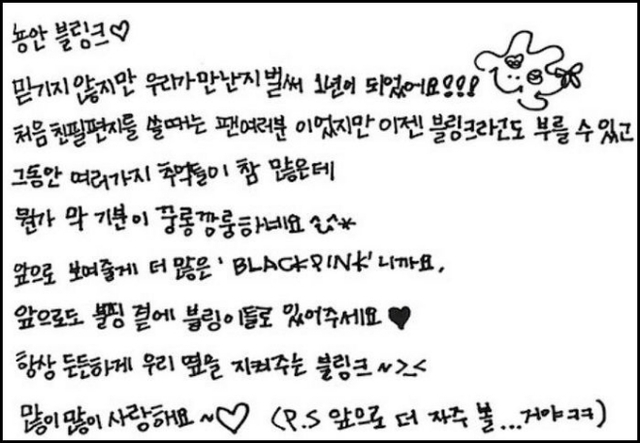 뇽안 블링크♡
믿기지 않지만 우리가 만난지 벌써 1년이 되었어요!!!
처음 친필편지를 쓸때는 팬여러분 이었지만 이젠 블링크라고도 부를 수 있고
그동안 여러가지 추억들이 참 많은데
뭔가 막 기분이 꿍롱깡룽하네요 ^^*
앞으로 보여줄게 더 많은 'BLACKPINK' 니까요.
앞으로도 블핑 곁에 블링이들로 있어주세요 ♥
항상 든든하게 우리 옆을 지켜주는 블링크~>_<
많이 많이 사랑해요 ~♡ (P.S 앞으로 더 자주 볼...거야ㅋㅋ)